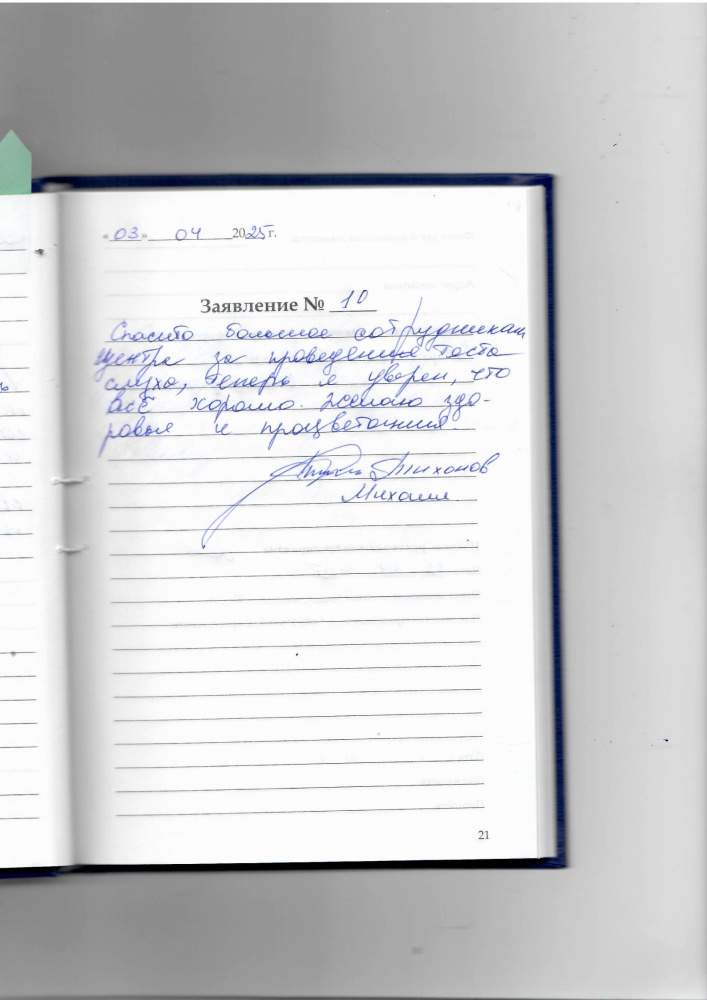 «03» 04 2025г.
Заявление № 10
Спасибо большое сотрудникам
центра за проведения теста
слуха, теперь я уверен, что
всё хорошо. Желаю здо-
ровья и процветания
Тихонов
Михаил
21